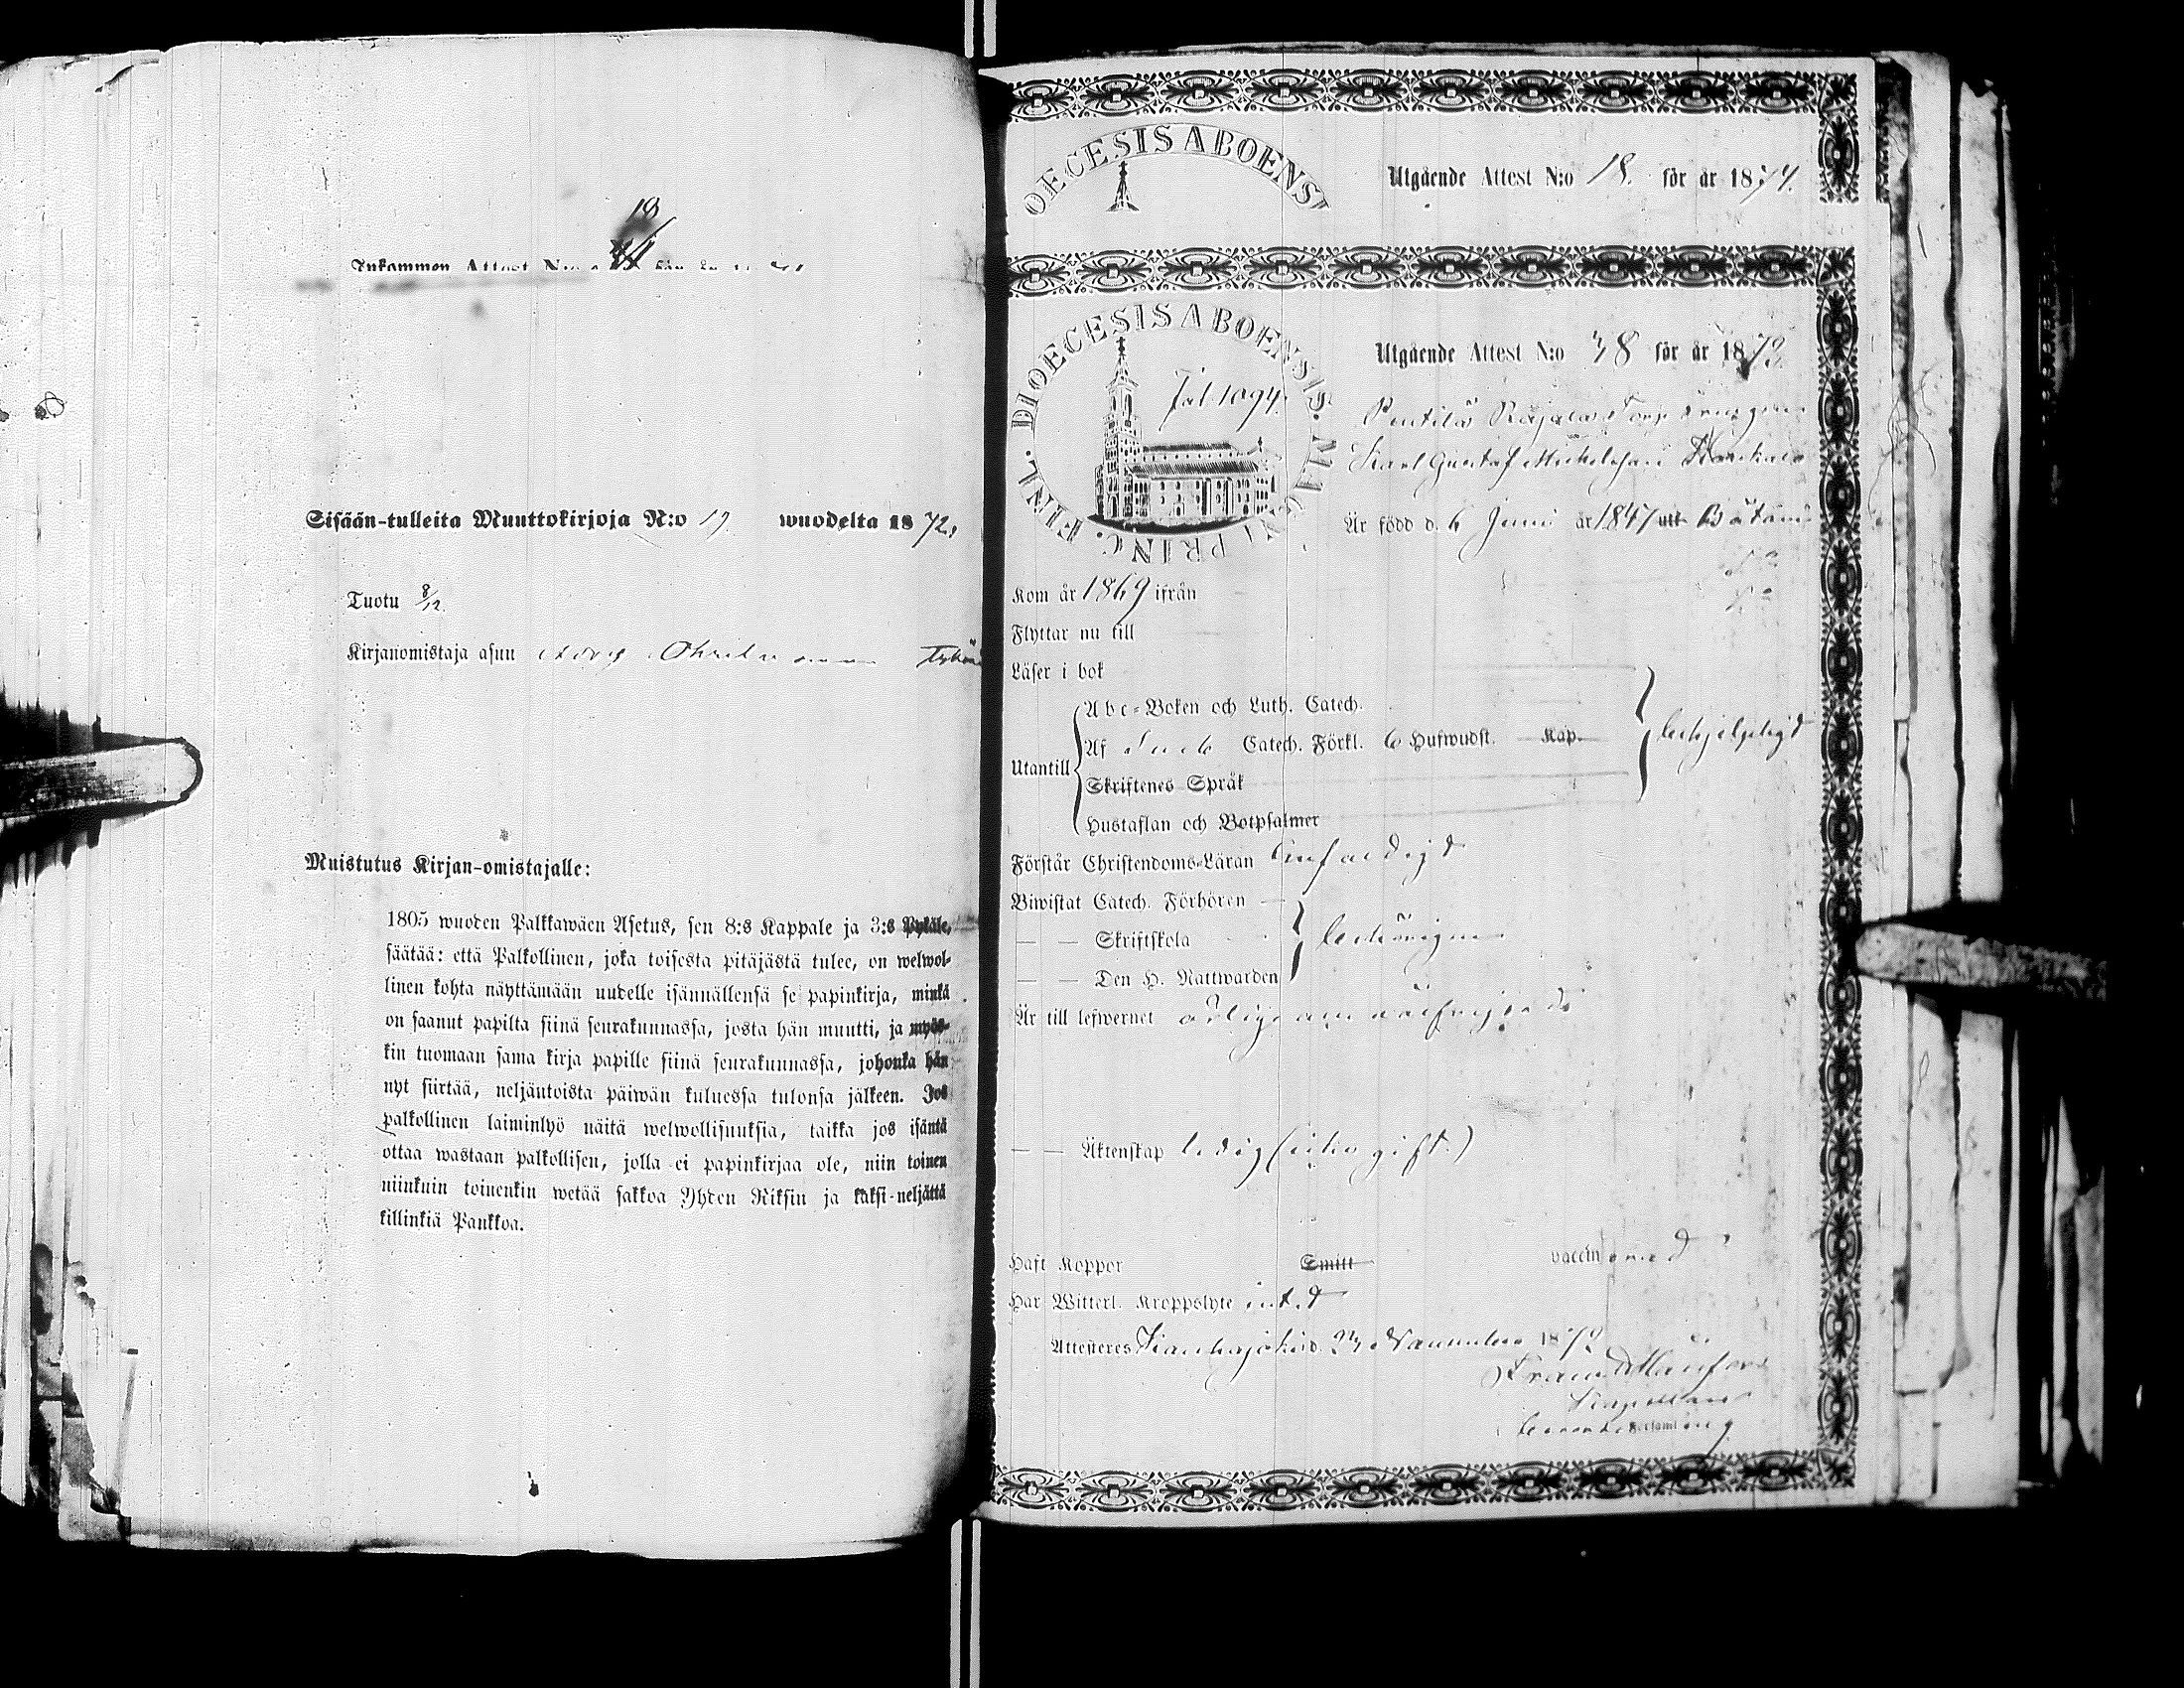 18
Inkommen Attest N:o
Sisään-tulleita Muuttokirjoja N:o 17. wuodelta 1872.
Tuotu 8/12.
Kirjanomistaja asuu
Muistutus Kirjan-omistajalle:
1805 wuoden Palkkawäen Asetus, sen 8:s Kappale ja 3:s Pykäle,
säätää: että Palkollinen, joka toisesta pitäjästä tulee, on welwol-
linen kohta näyttämään uudelle isännällensä se papinkirja, minkä
on saanut papilta siinä seurakunnassa, josta hän muutti, ja myös-
kin tuomaan sama kirja papille siinä seurakunnassa, johonka hän
nyt siirtää, neljäntoista päiwän kuluessa tulonsa jälkeen. Jos
palkollinen laiminlyö näitä welwollisuuksia, taikka jos isäntä
ottaa wastaan palkollisen, jolla ei papinkirjaa ole, niin toinen
niinkuin toinenkin wetää sakkoa Yhden Riksin ja kaksi-neljättä
killinkiä Pankkoa.
OECESIS ABOENSI
Utgående Attest N:o 18. för år 1874.
DIOECESIS ABOENSIS. MAGNI PRINC. FINL.
Utgående Attest N:o 38 för år 1872
Karl Gustaf Michelsson
Är född d. 6 Juni år 1847 utt Bötom
Kom år 1869 ifrån
Flyttar nu till
Läser i bok
Utantill
Abc-Boken och Luth. Catech.
Af Catech. Förkl. 6 Hufwudst. Kap.
Skriftenes Språk
behjelpligt
Hustaflan och Botpsalmer
Förstår Christendoms-Läran enfaldigt
Biwistat Catech. Förhören
— — Skriftskola behörigen
— — Den H. Nattwarden
Är till lefwernet ärlig och
— — Äktenskap ledig (icke gift.)
Haft Koppor Smitt vaccinerad
Har Witterl. Kroppslyte intet
Attesteres d. 23 November 1872
Kapellan
Församling